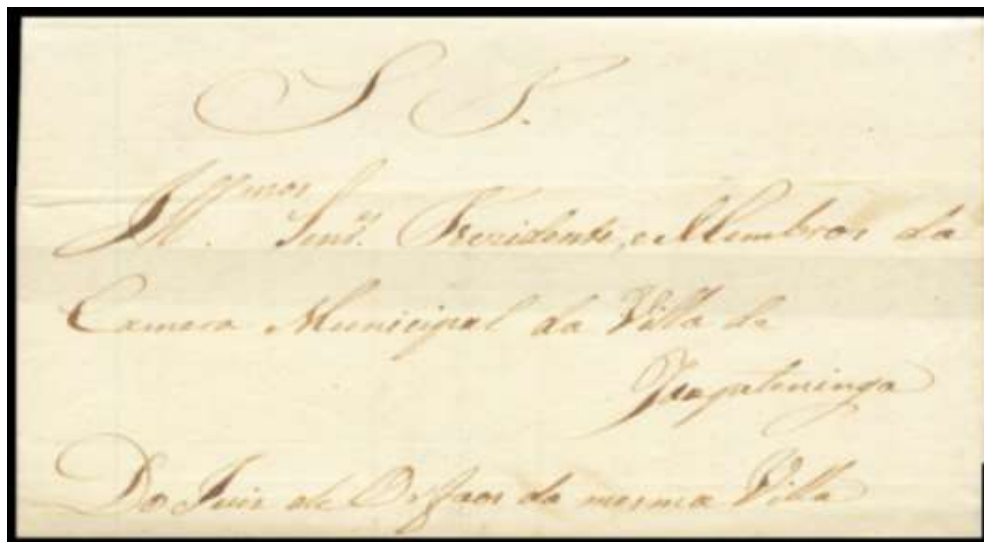 S. P.
Ill.mos Senr.s Prezidente, e Membros da
Camera Municipal da Villa de
Itapetininga
Do Juis de Orfaos da mesma Villa